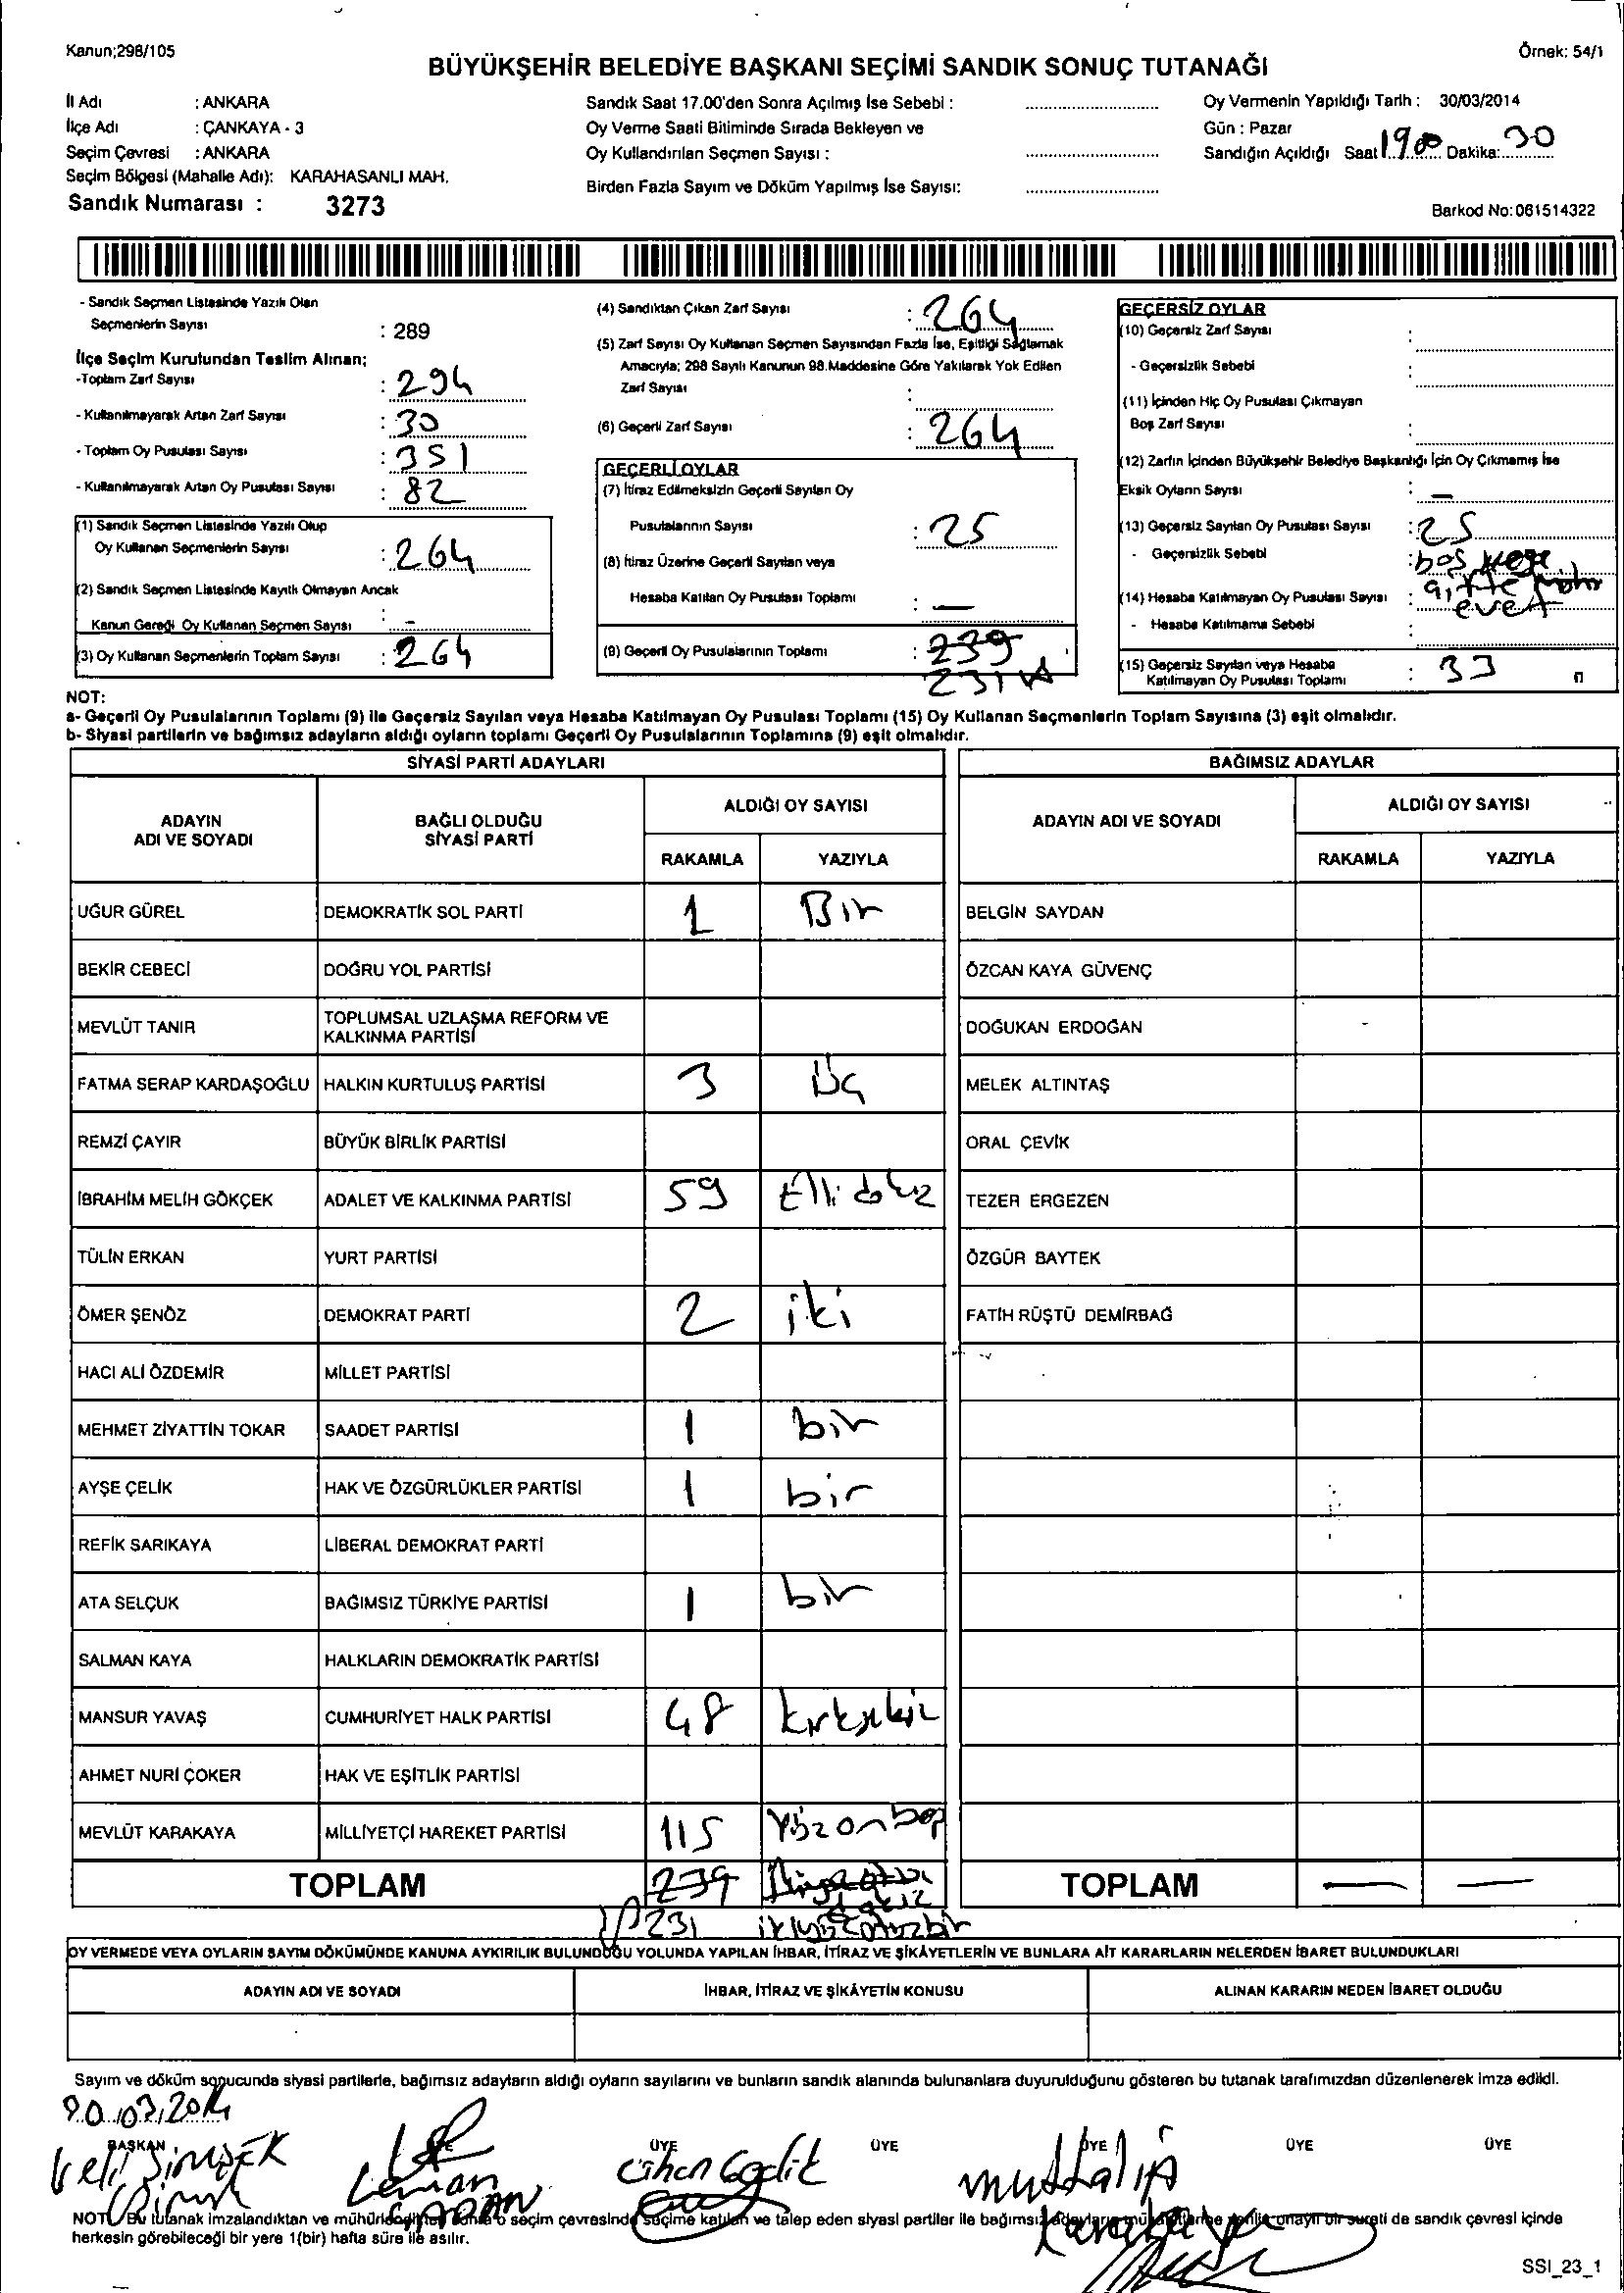 Kanun;298/105
Örnek: 54/1
BÜYÜKŞEHİR BELEDİYE BAŞKANI SEÇİMİ SANDIK SONUÇ TUTANAĞI
İl Adı : ANKARA
İlçe Adı : ÇANKAYA - 3
Seçim Çevresi : ANKARA
Seçim Bölgesi (Mahalle Adı): KARAHASANLI MAH.
Sandık Numarası : 3273
Sandık Saat 17.00'den Sonra Açılmış İse Sebebi :
Oy Verme Saati Bitiminde Sırada Bekleyen ve
Oy Kullandırılan Seçmen Sayısı :
Birden Fazla Sayım ve Döküm Yapılmış İse Sayısı:
Oy Vermenin Yapıldığı Tarih : 30/03/2014
Gün : Pazar
Sandığın Açıldığı Saat 19.00 Dakika: 30
Barkod No:061514322
- Sandık Seçmen Listesinde Yazılı Olan
Seçmenlerin Sayısı : 289
İlçe Seçim Kurulundan Teslim Alınan;
-Toplam Zarf Sayısı : 294
- Kullanılmayarak Artan Zarf Sayısı : 30
- Toplam Oy Pusulası Sayısı : 351
- Kullanılmayarak Artan Oy Pusulası Sayısı : 82
(1) Sandık Seçmen Listesinde Yazılı Olup
Oy Kullanan Seçmenlerin Sayısı : 264
(2) Sandık Seçmen Listesinde Kayıtlı Olmayan Ancak
Kanun Gereği Oy Kullanan Seçmen Sayısı : -
(3) Oy Kullanan Seçmenlerin Toplam Sayısı : 264
(4) Sandıktan Çıkan Zarf Sayısı : 264
(5) Zarf Sayısı Oy Kullanan Seçmen Sayısından Fazla İse, Eşitliği Sağlamak
Amacıyla; 298 Sayılı Kanunun 98.Maddesine Göre Yakılarak Yok Edilen
Zarf Sayısı :
(6) Geçerli Zarf Sayısı : 264
GEÇERLİ OYLAR
(7) İtiraz Edilmeksizin Geçerli Sayılan Oy
Pusulalarının Sayısı : 25
(8) İtiraz Üzerine Geçerli Sayılan veya
Hesaba Katılan Oy Pusulası Toplamı : —
(9) Geçerli Oy Pusulalarının Toplamı : 239
231
GEÇERSİZ OYLAR
(10) Geçersiz Zarf Sayısı :
- Geçersizlik Sebebi :
(11) İçinden Hiç Oy Pusulası Çıkmayan
Boş Zarf Sayısı :
(12) Zarfın İçinden Büyükşehir Belediye Başkanlığı İçin Oy Çıkmamış İse
Eksik Oyların Sayısı : —
(13) Geçersiz Sayılan Oy Pusulası Sayısı : 25
- Geçersizlik Sebebi : boş veya
çifte mühür
(14) Hesaba Katılmayan Oy Pusulası Sayısı : evet
- Hesaba Katılmama Sebebi :
(15) Geçersiz Sayılan veya Hesaba
Katılmayan Oy Pusulası Toplamı : 33
NOT:
a- Geçerli Oy Pusulalarının Toplamı (9) ile Geçersiz Sayılan veya Hesaba Katılmayan Oy Pusulası Toplamı (15) Oy Kullanan Seçmenlerin Toplam Sayısına (3) eşit olmalıdır.
b- Siyasi partilerin ve bağımsız adayların aldığı oyların toplamı Geçerli Oy Pusulalarının Toplamına (9) eşit olmalıdır.
SİYASİ PARTİ ADAYLARI
ADAYIN ADI VE SOYADI
BAĞLI OLDUĞU SİYASİ PARTİ
ALDIĞI OY SAYISI
RAKAMLA YAZIYLA
UĞUR GÜREL DEMOKRATİK SOL PARTİ 1 Bir
BEKİR CEBECİ DOĞRU YOL PARTİSİ
MEVLÜT TANIR TOPLUMSAL UZLAŞMA REFORM VE
KALKINMA PARTİSİ
FATMA SERAP KARDAŞOĞLU HALKIN KURTULUŞ PARTİSİ 3 Üç
REMZİ ÇAYIR BÜYÜK BİRLİK PARTİSİ
İBRAHİM MELİH GÖKÇEK ADALET VE KALKINMA PARTİSİ 59 Elli dokuz
TÜLİN ERKAN YURT PARTİSİ
ÖMER ŞENÖZ DEMOKRAT PARTİ 2 iki
HACI ALİ ÖZDEMİR MİLLET PARTİSİ
MEHMET ZİYATTİN TOKAR SAADET PARTİSİ 1 bir
AYŞE ÇELİK HAK VE ÖZGÜRLÜKLER PARTİSİ 1 bir
REFİK SARIKAYA LİBERAL DEMOKRAT PARTİ
ATA SELÇUK BAĞIMSIZ TÜRKİYE PARTİSİ 1 bir
SALMAN KAYA HALKLARIN DEMOKRATİK PARTİSİ
MANSUR YAVAŞ CUMHURİYET HALK PARTİSİ 48 kırksekiz
AHMET NURİ ÇOKER HAK VE EŞİTLİK PARTİSİ
MEVLÜT KARAKAYA MİLLİYETÇİ HAREKET PARTİSİ 115 Yüz on beş
TOPLAM 239
231 ikiyüzotuzbir
BAĞIMSIZ ADAYLAR
ADAYIN ADI VE SOYADI
ALDIĞI OY SAYISI
RAKAMLA YAZIYLA
BELGİN SAYDAN
ÖZCAN KAYA GÜVENÇ
DOĞUKAN ERDOĞAN
MELEK ALTINTAŞ
ORAL ÇEVİK
TEZER ERGEZEN
ÖZGÜR BAYTEK
FATİH RÜŞTÜ DEMİRBAĞ
TOPLAM — —
OY VERMEDE VEYA OYLARIN SAYIM DÖKÜMÜNDE KANUNA AYKIRILIK BULUNDUĞU YOLUNDA YAPILAN İHBAR, İTİRAZ VE ŞİKÂYETLERİN VE BUNLARA AİT KARARLARIN NELERDEN İBARET BULUNDUKLARI
ADAYIN ADI VE SOYADI İHBAR, İTİRAZ VE ŞİKÂYETİN KONUSU ALINAN KARARIN NEDEN İBARET OLDUĞU
Sayım ve döküm sonucunda siyasi partilerle, bağımsız adayların aldığı oyların sayılarını ve bunların sandık alanında bulunanlara duyurulduğunu gösteren bu tutanak tarafımızdan düzenlenerek imza edildi.
30.03.2014
BAŞKAN ÜYE ÜYE ÜYE ÜYE ÜYE ÜYE
Veli ŞİMŞEK Leman Cihan Muttalip
Karakaya
NOT: Bu tutanak imzalandıktan ve mühürlendikten sonra o seçim çevresinde seçime katılan ve talep eden siyasi partiler ile bağımsız adaylara mühürlenerek verilir onaylı bir sureti de sandık çevresi içinde
herkesin görebileceği bir yere 1(bir) hafta süre ile asılır.
SSI_23_1